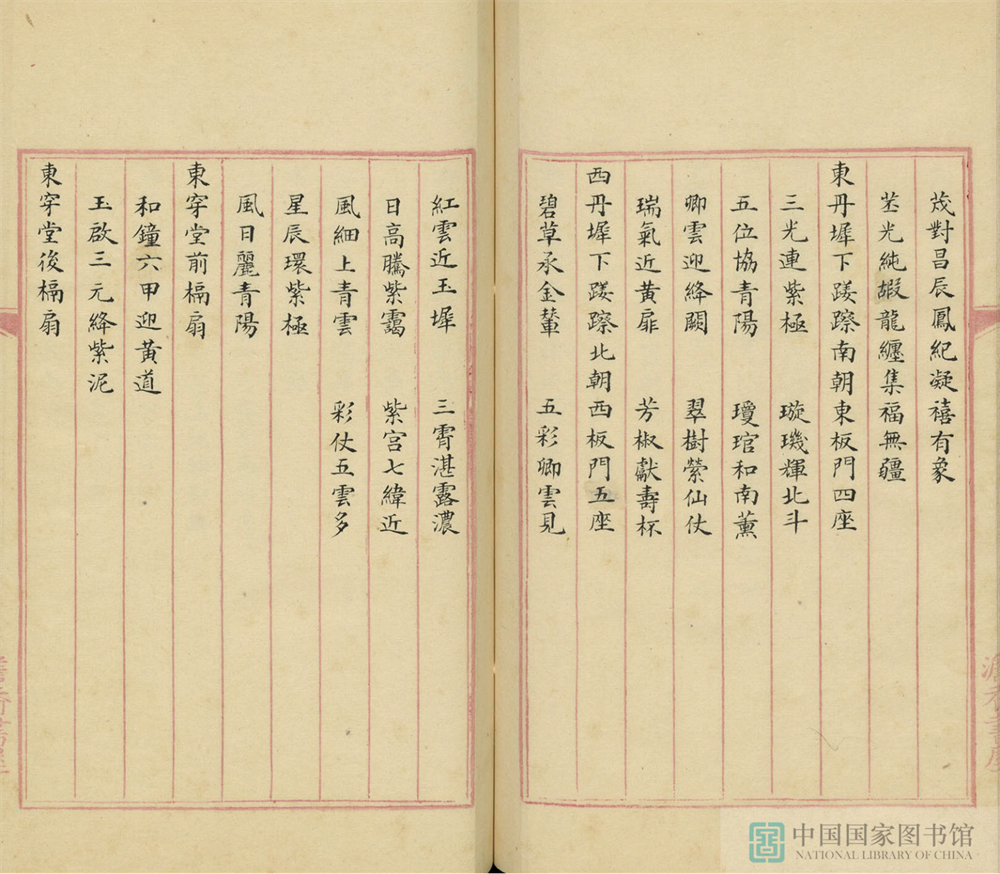 茂對昌辰鳳紀凝禧有象
丕光純嘏龍纏集福無疆
東丹墀下踐蹽南朝東板門四座
三光連紫極 璇璣輝北斗
五位協青陽 瓊琯和南薰
卿雲迎絳闕 翠樹縈仙仗
瑞氣近黃扉 芳椒獻壽杯
西丹墀下踐蹽北朝西板門五座
碧草承金輦 五彩卿雲見
紅雲近玉墀 三霄湛露濃
日高騰紫靄 紫宮七緯近
風細上青雲 彩仗五雲多
星辰環紫極
風日麗青陽
東穿堂前槅扇
和鐘六甲迎黃道
玉啟三元絳紫泥
東穿堂後槅扇
中国国家图书馆
NATIONAL LIBRARY OF CHINA